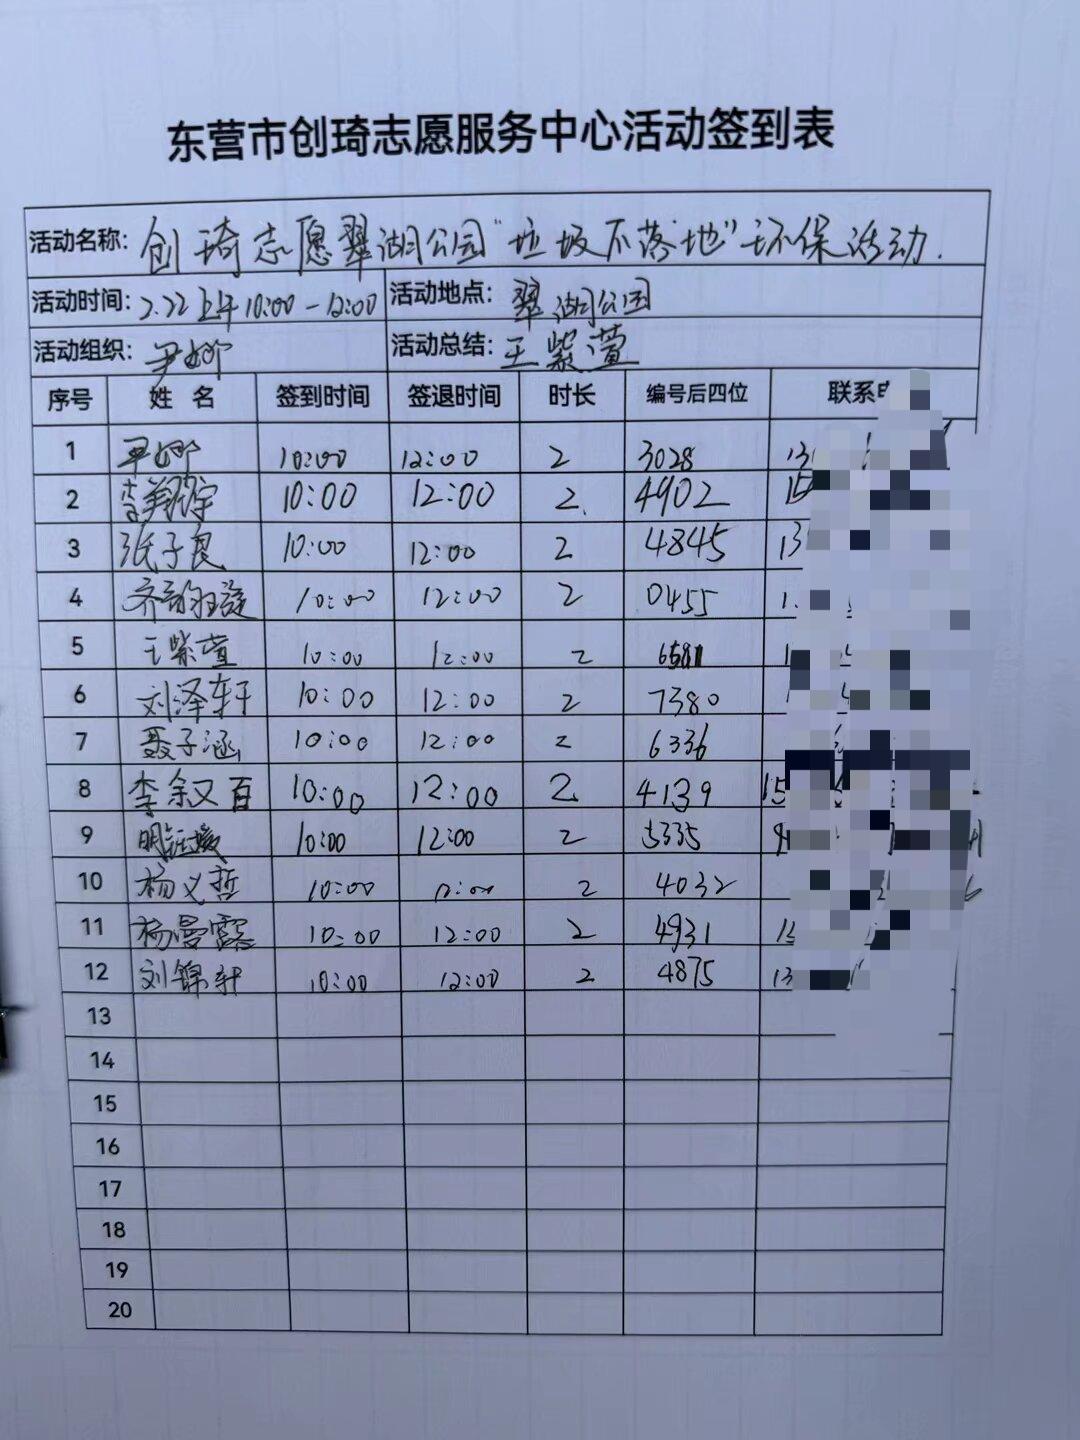 东营市创琦志愿服务中心活动签到表
活动名称: 创琦志愿翠湖公园"垃圾不落地"环保活动.
活动时间: 2.22上午10:00-12:00 活动地点: 翠湖公园
活动组织: 尹娜 活动总结: 王紫萱
序号 姓名 签到时间 签退时间 时长 编号后四位 联系
1 尹娜 10:00 12:00 2 3028
2 李翔宇 10:00 12:00 2. 4902
3 张子良 10:00 12:00 2 4845
4 齐 10:00 12:00 2 0455
5 王紫萱 10:00 12:00 2
6 刘泽轩 10:00 12:00 2 7380
7 聂子涵 10:00 12:00 2 6336
8 李余又百 10:00 12:00 2 4139
9 明 10:00 12:00 2 5335
10 杨义哲 10:00 12:00 2 4032
11 杨曼露 10:00 12:00 2 4931
12 刘锦轩 10:00 12:00 2 4875
13
14
15
16
17
18
19
20